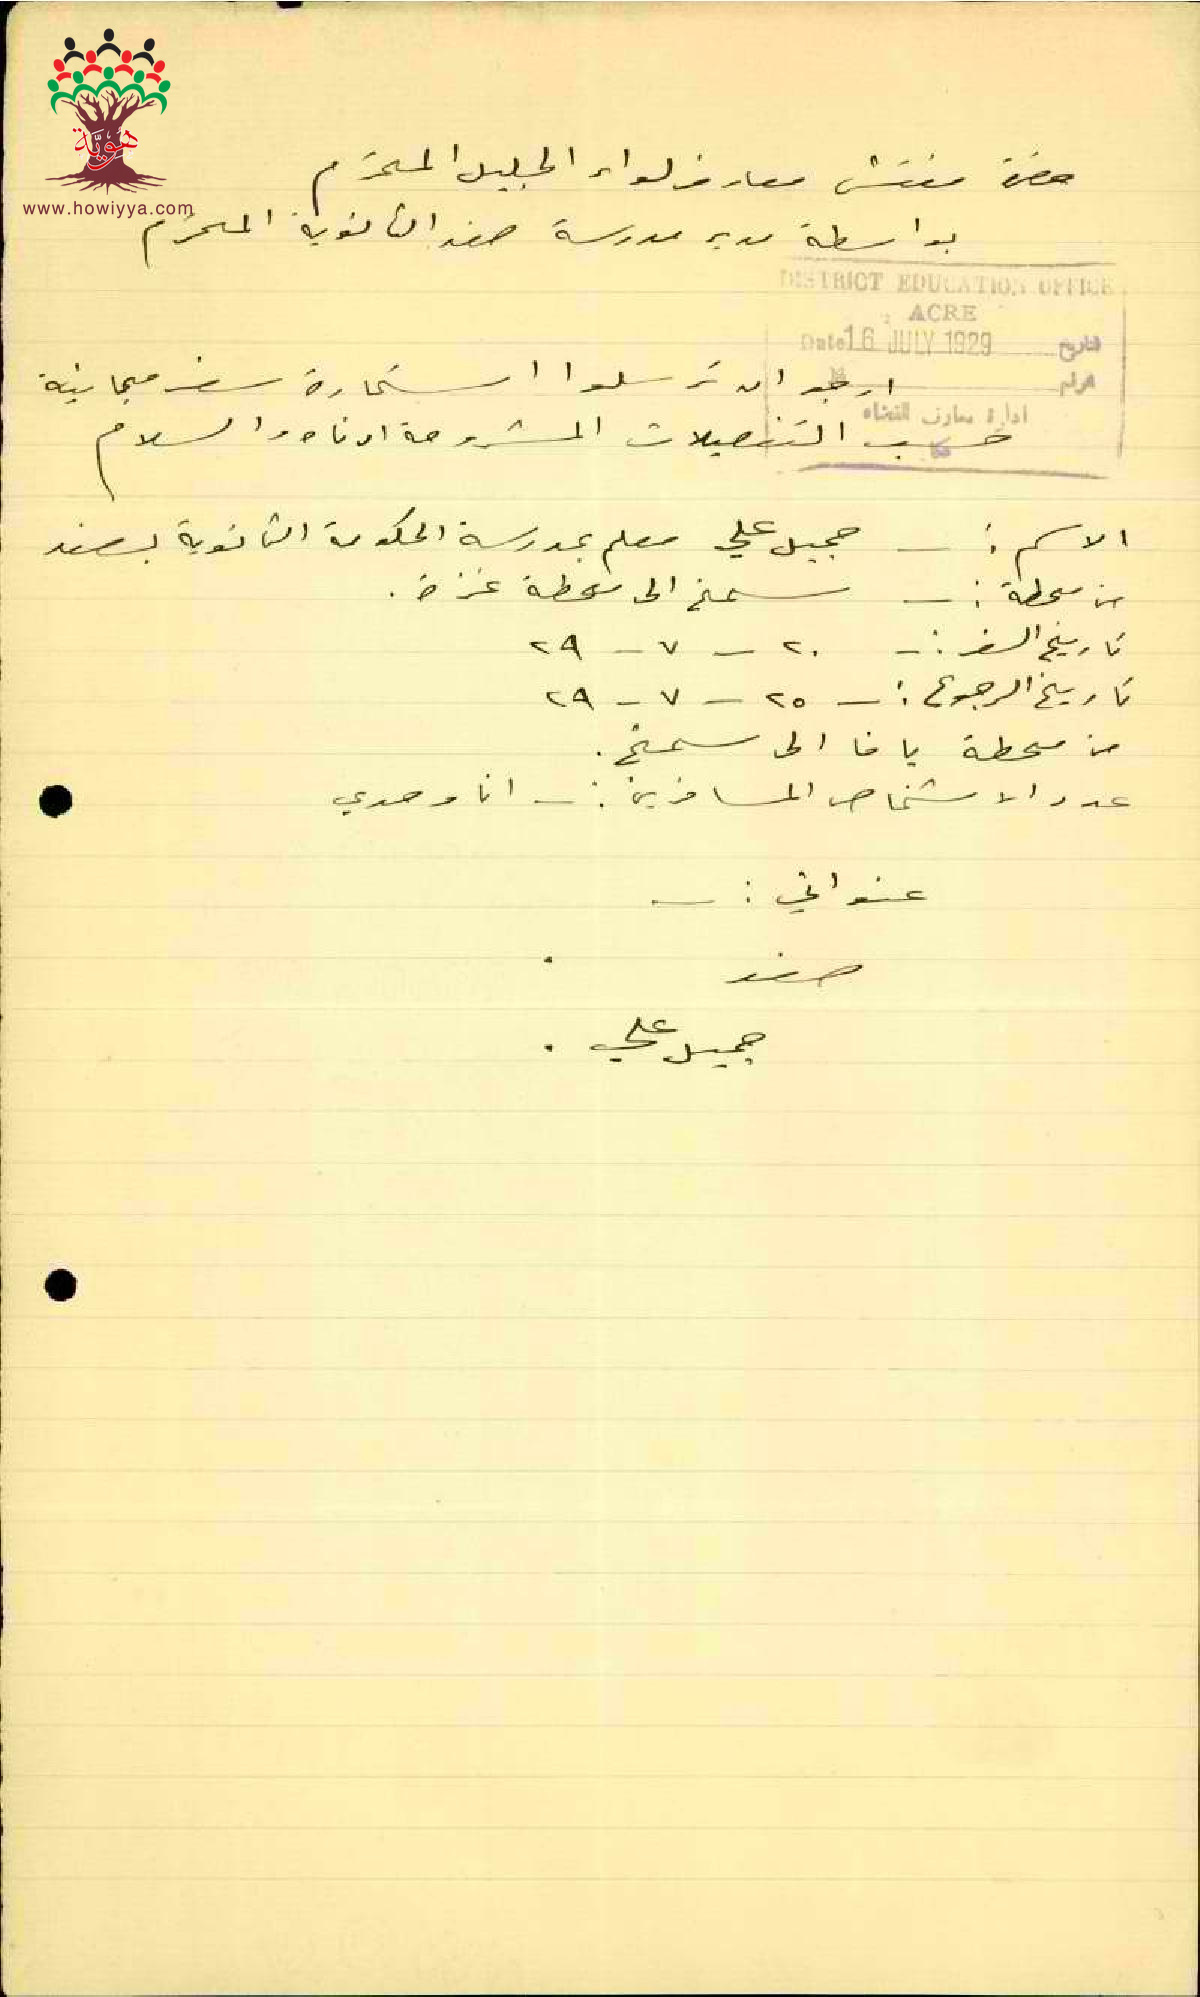 هوية
www.howiyya.com
حضرة مفتش معارف لواء الجليل المحترم
بواسطة مدير مدرسة صفد الثانوية المحترم
DISTRICT EDUCATION OFFICE
ACRE
Date 16 JULY 1929 التاريخ
الرقم
ادارة معارف القضاء
عكا
ارجو ان ترسلوا استمارة سفر مجانية
حسب التفصيلات المشروحة ادناه والسلام
الاسم :ـ جميل علي معلم بمدرسة الحكومة الثانوية بصفد
من محطة :ـ سمخ الى محطة غزة .
تاريخ السفر :ـ ٢٠ ـ ٧ ـ ٢٩
تاريخ الرجوع :ـ ٢٥ ـ ٧ ـ ٢٩
من محطة يافا الى سمخ .
عدد الاشخاص المسافرين :ـ انا وحدي
عنواني :ـ
صفد .
جميل علي .